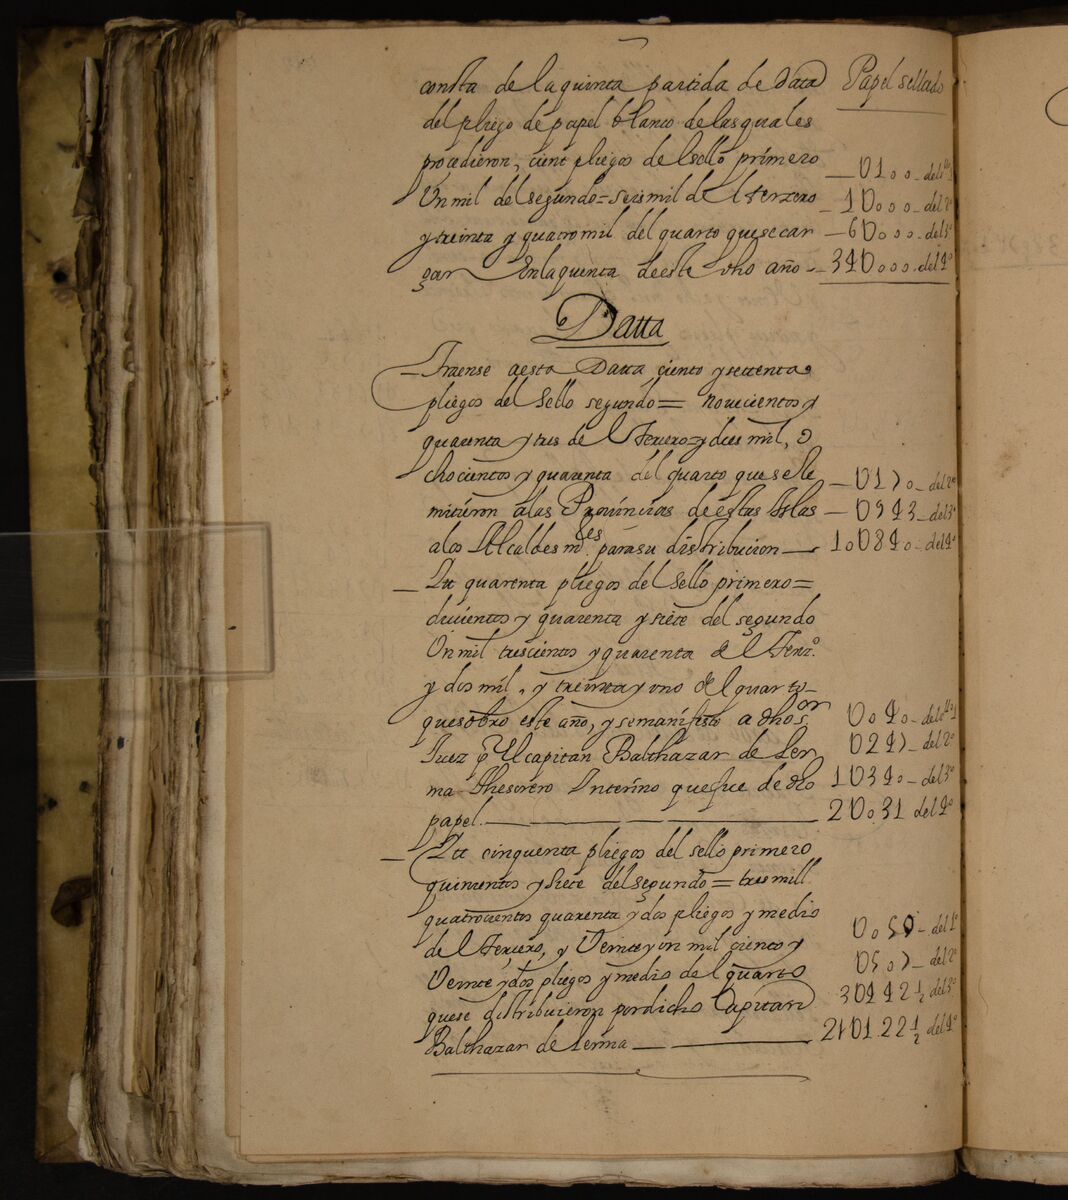 consta de la quinta partida de Data Papel sellado
del pliego de papel blanco de las quales
procedieron, cient pliegos del sello primero — U100 - del 1º
Un mil del segundo = seis mil del terzero — 1U000 - del 2º
y treinta y quatro mil del quarto que se car — 6U000 - del 3º
gar En la quenta de este dho año — 34U000 - del 4º
Datta
— Traense a esta Datta çiento y settenta
pliegos del sello segundo = novecientos y
quarenta y tres del Terzero y diez mil, o
chocientos y quarenta del quarto que se le — U170 - del 2º
mitieron a las Provinçias de estas Yslas — U943 - del 3º
a los Alcaldes m.es para su distribucion — 10U840 - del 4º
— Ytt quarenta pliegos del sello primero =
duçientos y quarenta y siete del segundo
Un mil trescientos y quarenta del Terz.º
y dos mil, y treinta y uno del quarto
que sobro este año, y se manifesto a dho s.or U040 - del 1º
Juez p.r El capitan Balthazar de Ler U247 - del 2º
ma Thesorero Interino que fue de dho 1U340 - del 3º
papel. — 2U031 del 4º
— Ytt cinquenta pliegos del sello primero
quinientos y siete del segundo = tres mill
quatrocientos quarenta y dos pliegos y medio
del Terçero, y Veinte y un mil çiento y U050 - del 1º
Veinte y dos pliegos y medio del quarto U507 - del 2º
que se distribuieron por dicho Capitan 3U442½ del 3º
Balthazar de Lerma — 21U122½ del 4º